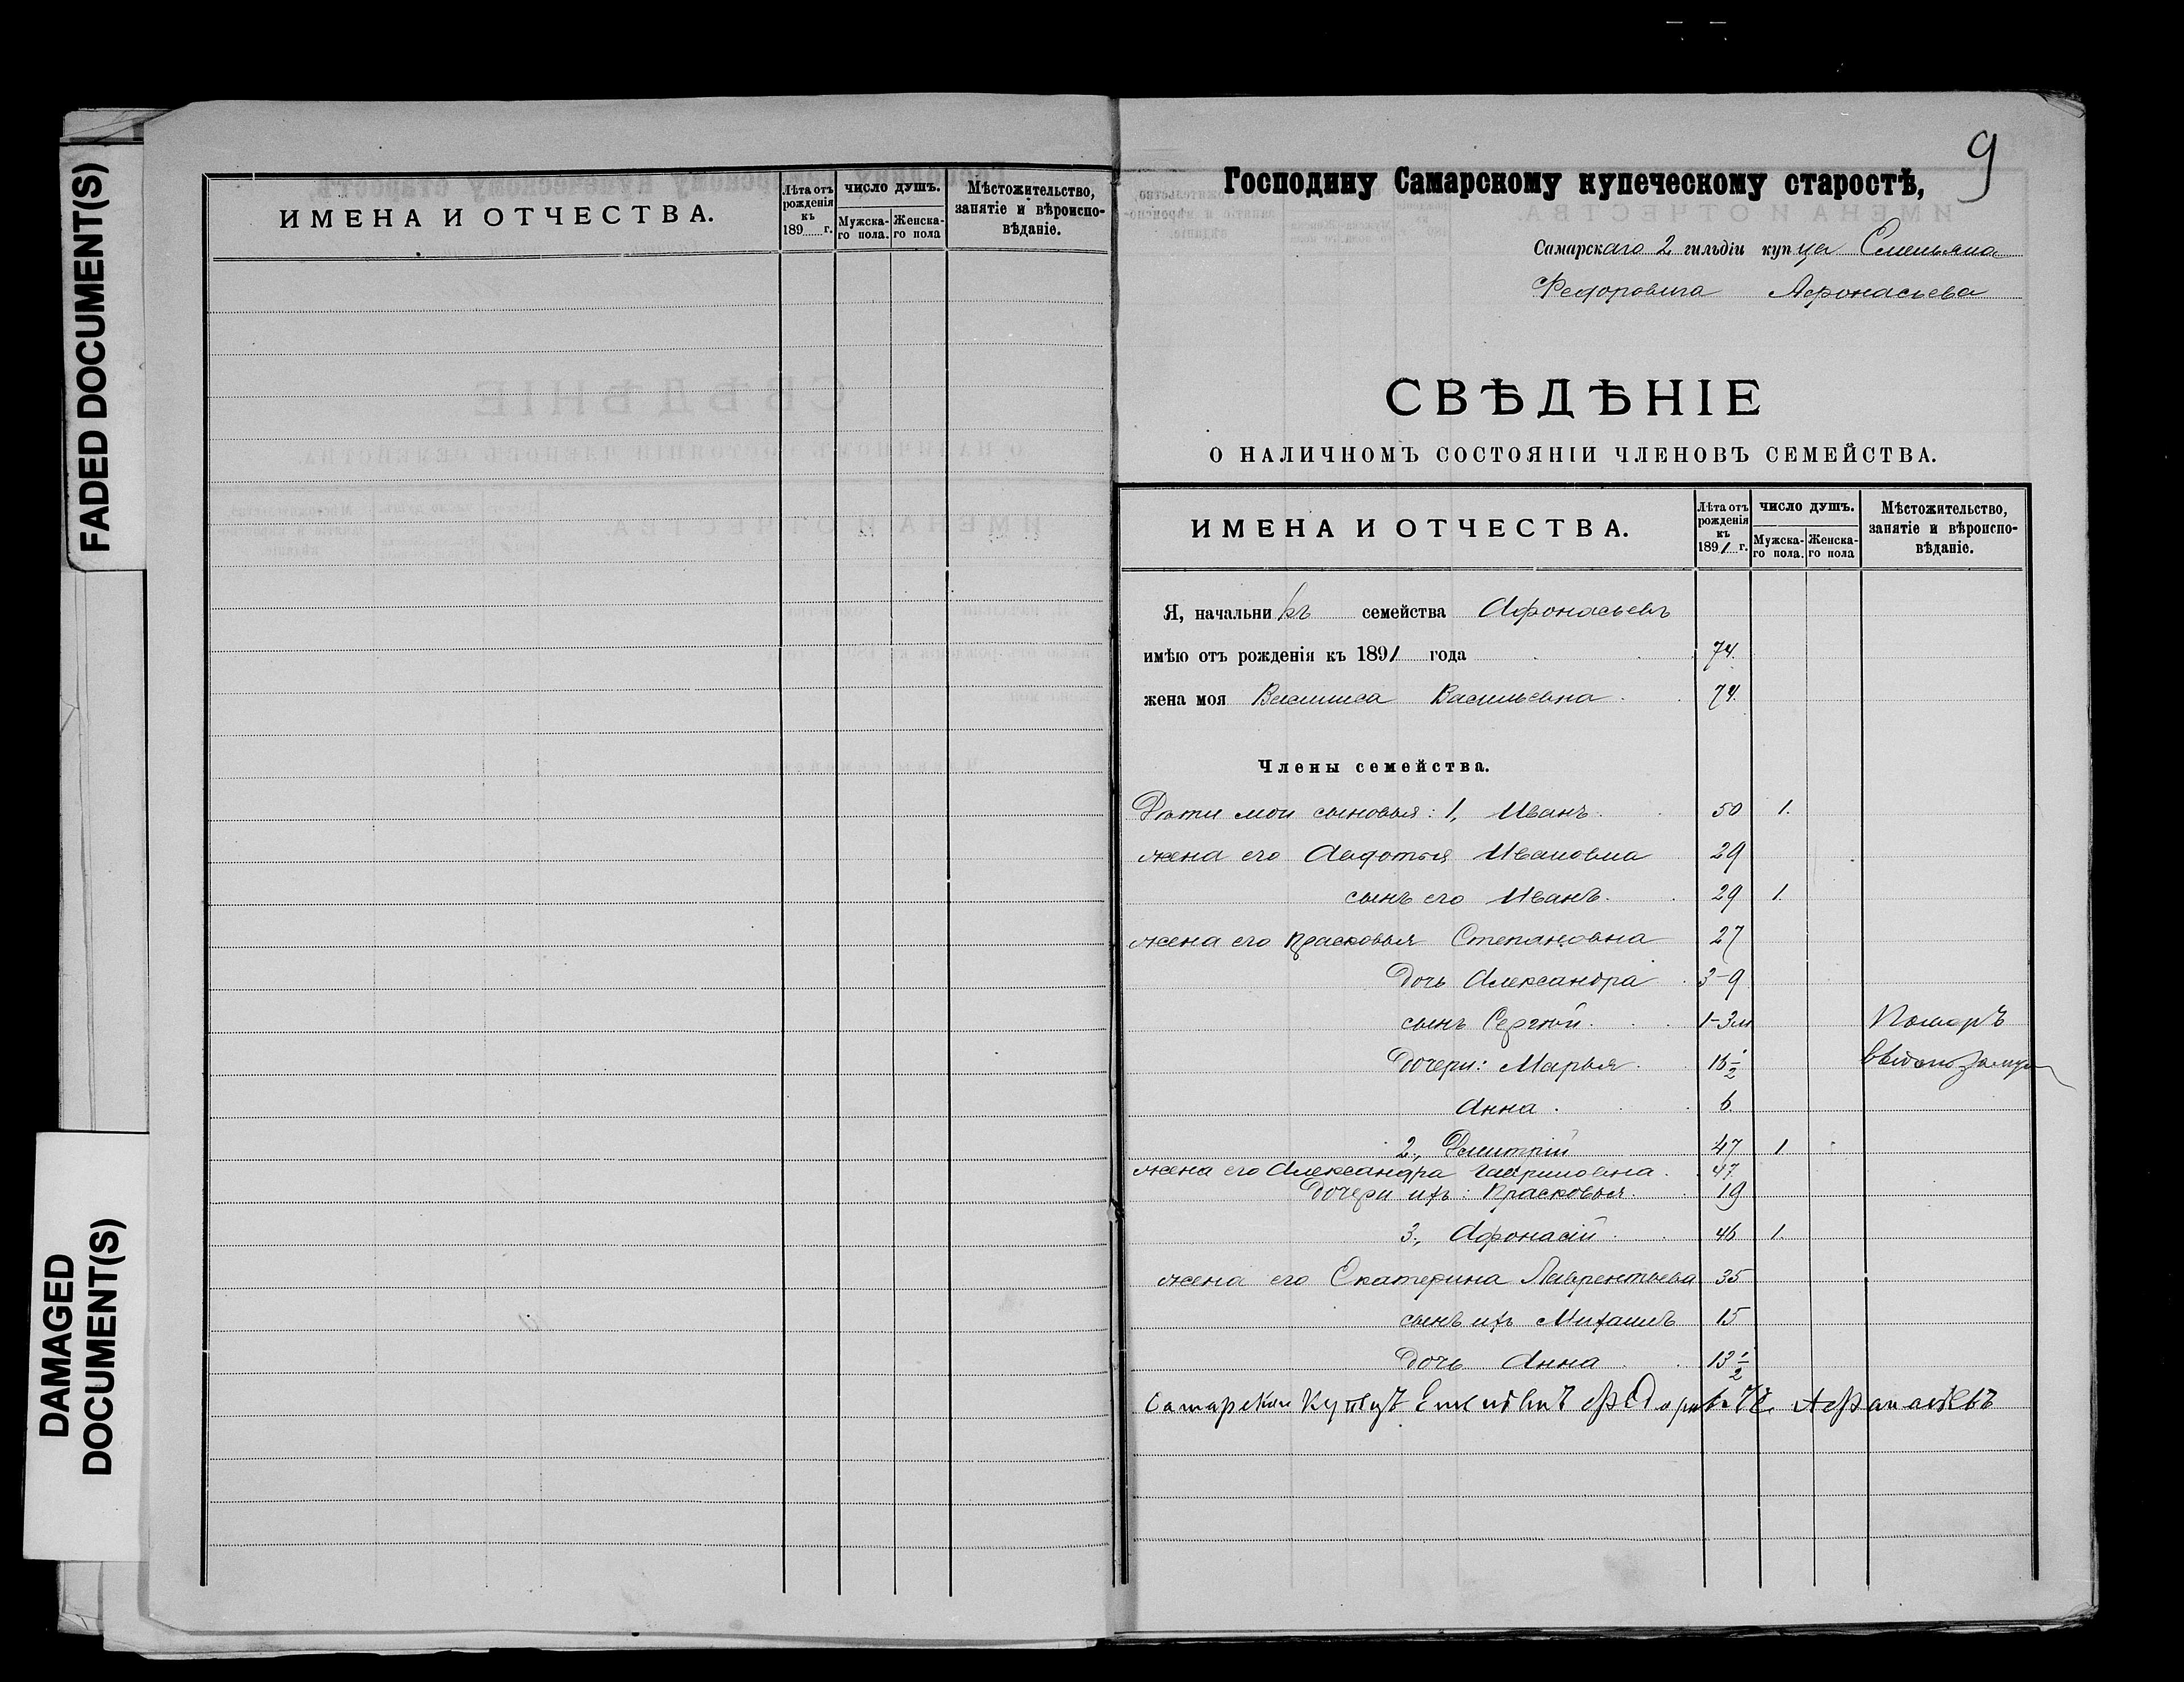 FADED DOCUMENT(S)
DAMAGED
DOCUMENT(S)
ИМЕНА И ОТЧЕСТВА.
Лѣта отъ рожденія къ 189 г.
ЧИСЛО ДУШЪ.
Мужска-го пола.
Женска-го пола
Мѣстожительство, занятіе и вѣроиспо-вѣданіе.
9
Господину Самарскому купеческому старостѣ,
Самарскаго 2 гильдіи купца Емельяна
Федоровича Афонасьева
СВѢДѢНІЕ
О НАЛИЧНОМЪ СОСТОЯНІИ ЧЛЕНОВЪ СЕМЕЙСТВА.
ИМЕНА И ОТЧЕСТВА.
Лѣта отъ рожденія къ 1891 г.
ЧИСЛО ДУШЪ.
Мужска-го пола.
Женска-го пола
Мѣстожительство, занятіе и вѣроиспо-вѣданіе.
Я, начальникъ семейства Афонасьевъ
имѣю отъ рожденія къ 1891 года 74.
жена моя Васильевна 74.
Члены семейства.
Дѣти мои сыновья: 1, Иванъ. 50 1.
жена его Авдотья Ивановна 29
сынъ его Иванъ. 29 1.
жена его Прасковья Степановна 27
дочь Александра 3-9
сынъ Сергѣй. 1-3м Померъ
дочери: Марья. 16 1/2
Анна. 6
2., Дмитрій 47 1
жена его Александра Гавриловна. 47
дочери ихъ: Прасковья. 19
3., Афонасій 46 1.
жена его Екатерина Лаврентьева 35
сынъ ихъ Михаилъ 15
дочь Анна 13 1/2
Самарскии Купецъ Афанасѣевъ